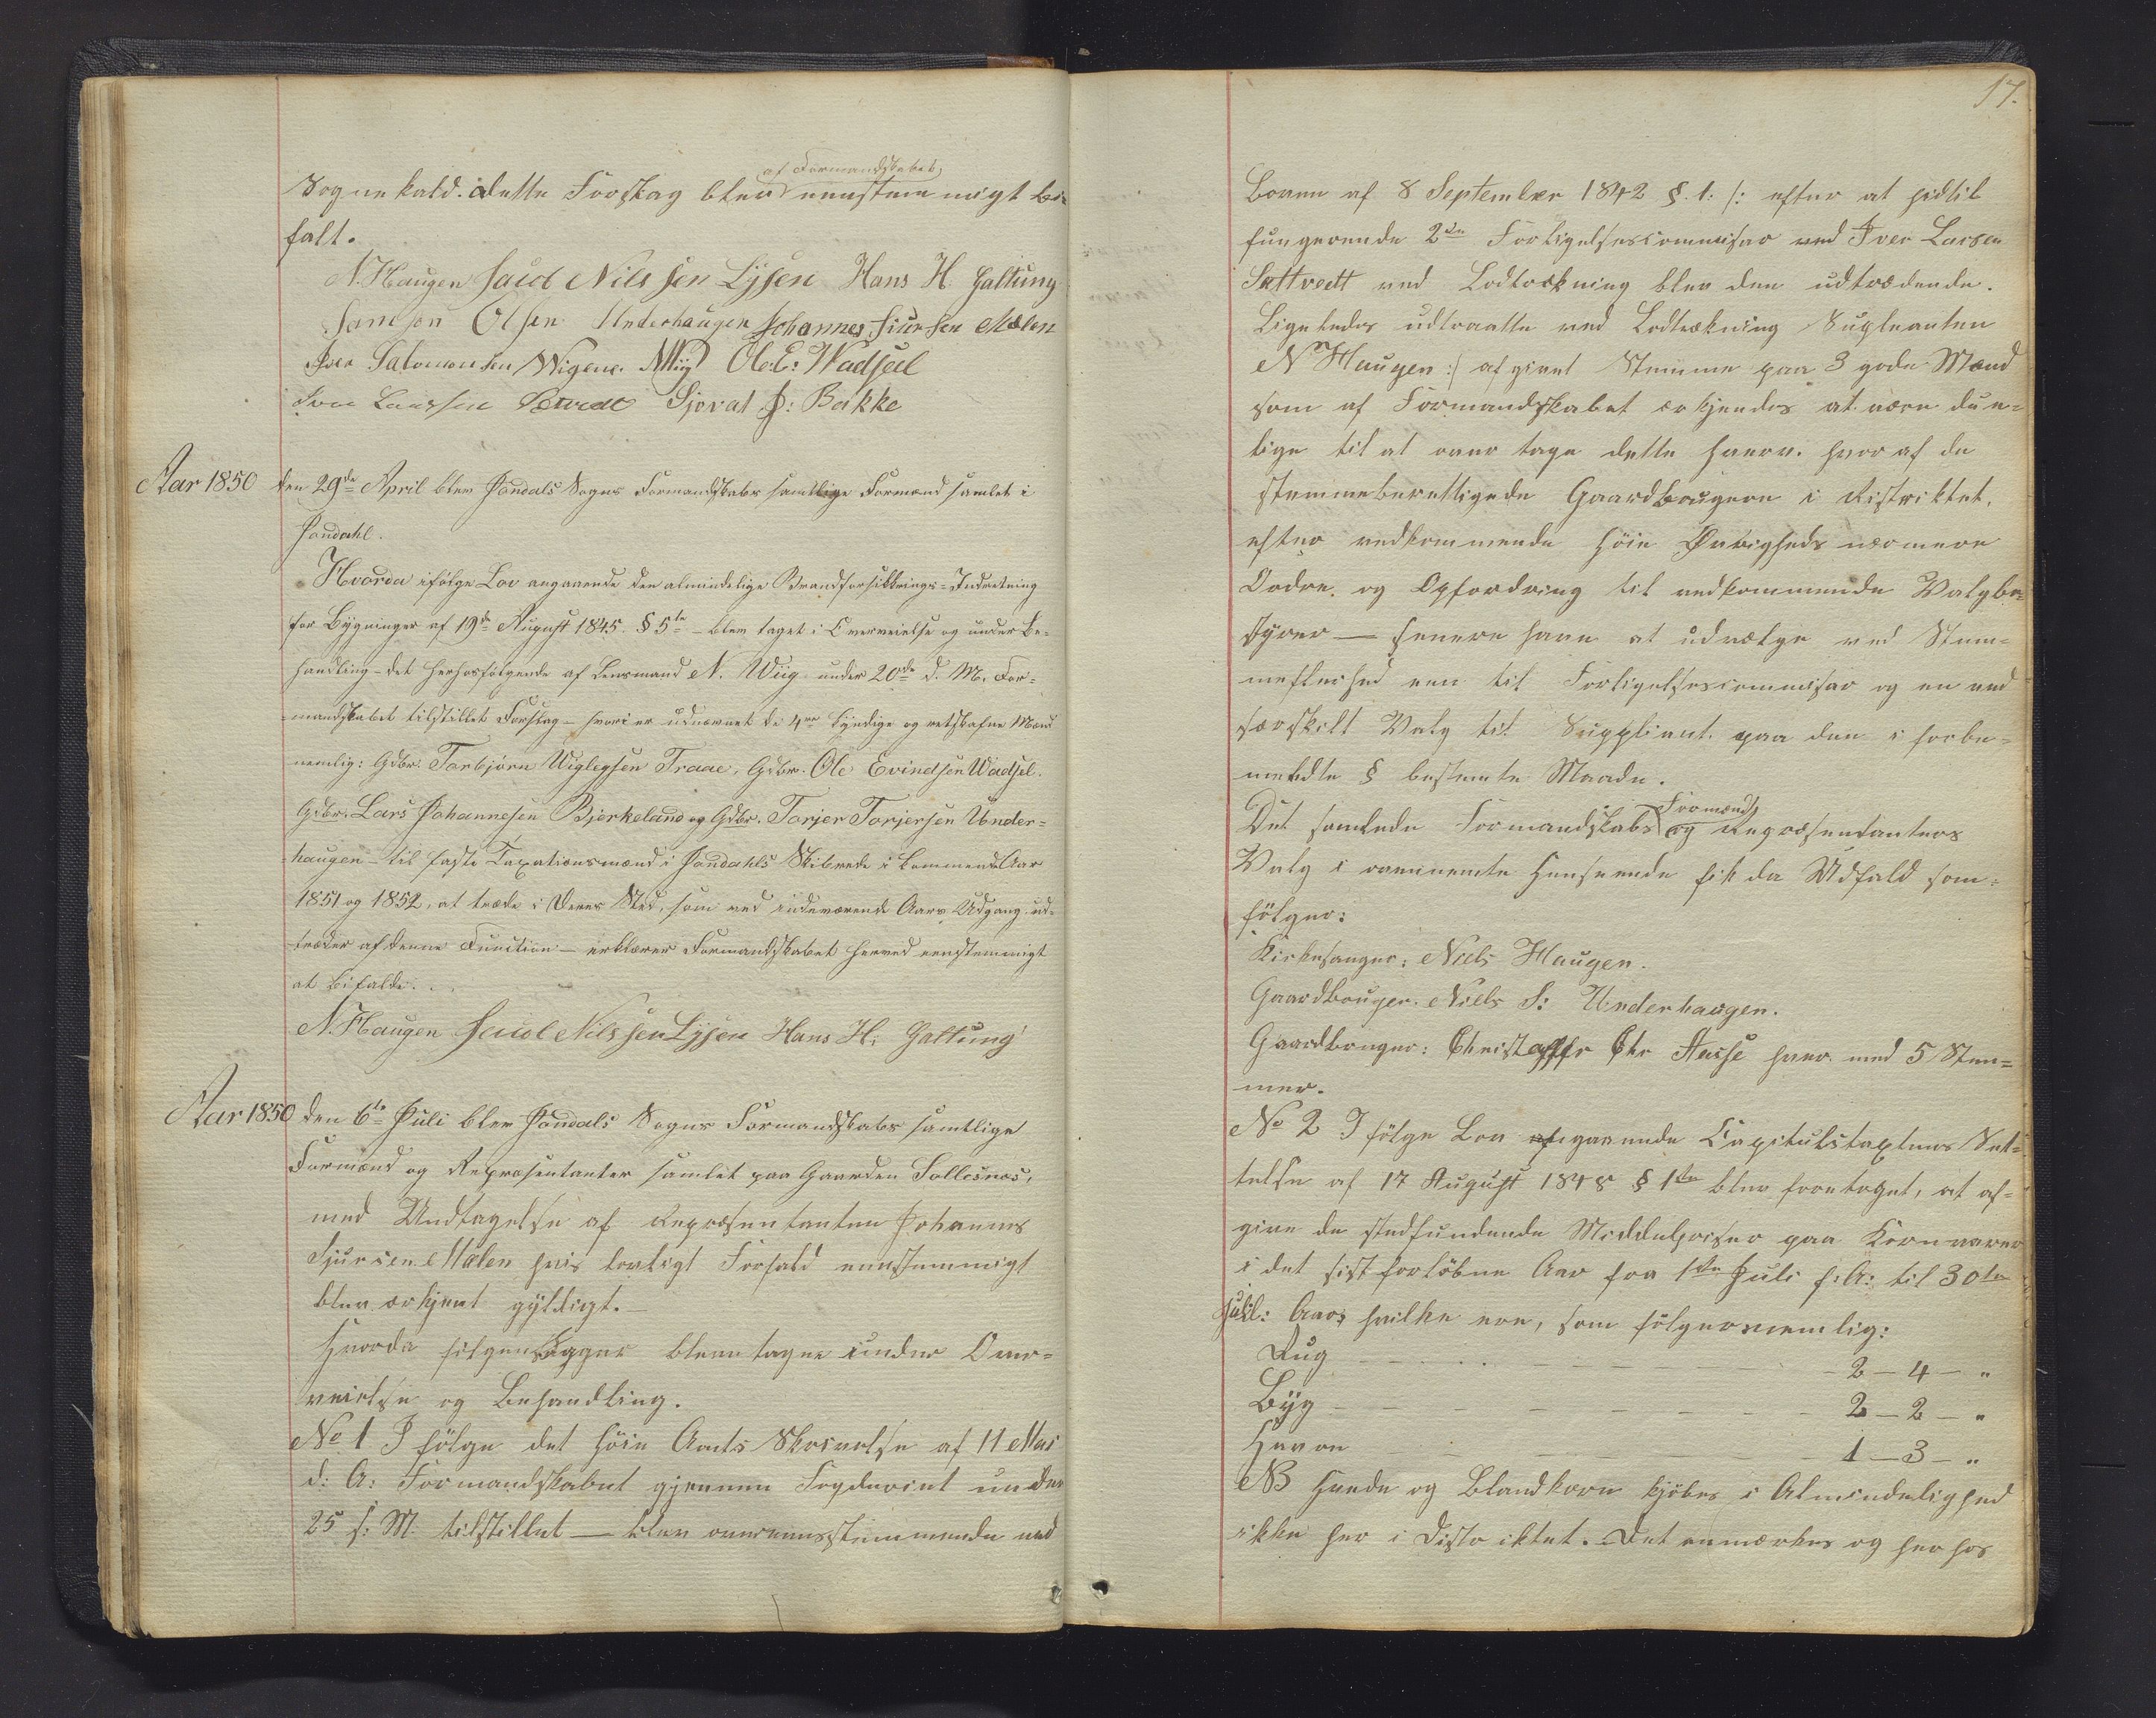 af Formandskabet
Sognekald. Dette Forslag blev eenstemmigt bi-
falt.
N. Haugen Jacob Nilssen Lysen Hans H. Galtung
Samson Olsen Underhaugen Johannes Siursen Mælen
Iver Salomonsen Wigene. NWiig Ole E: Wadsel
Iver Larssen Sætvedt Sjovat J: Bakke
Aar 1850 den 29de April blev Jondals Sogns Formandskabs samtlige Formænd samlet i
Jondahl.
Hvorda ifølge Lov angaaende den almindelige Brandforsikkrings-Indretning
for Bÿgninger af 19de August 1845. § 5te – blev taget i Overveielse og under Be-
handling – det herhosfølgende af Lensmand N. Wiig under 20de d. M. For-
mandskabet tilstillet Forslag – hvori er udnævnet de 4re kÿndige og retskafne Mænd
nemlig: Gdbr. Torbjørn Wiglegsen Traae, Gdbr. Ole Evindsen Wadsel.
Gdbr. Lars Johannesen Bjerkeland og Gdbr. Torjer Torjersen Under-
haugen – til faste Taxationsmænd i Jondahls Skibrede i kommende Aar
1851 og 1852, at træde i Deres Sted, som ved indeværende Aars Udgang ud-
træder af denne Function – erklærer Formandskabet herved eenstemmigt
at bifalde.
N. Haugen Jacob Nilssen Lysen Hans H. Galtung
Aar 1850 den 6te Juli blev Jondals Sogns Formandskabs samtlige
Formænd og Repræsentanter samlet paa Gaarden Sollesnæs,
med Undtagelse af Repræsentanten Johannes
Sjursen Mælen hvis lovligt Forfald eenstemmigt
blev erkjent gÿldigt. –
Hvorda følgende Sagger bleve tagne under Over-
veielse og Behandling.
No 1 I følge det høie Amts Skrivelse af 11 Mai
d: A: Formandskabet gjennem Fogderiet under
25 s: M. tilstillet – blev overeensstemmende med
17.
Loven af 8 September 1842 §. 1. /: efter at hidtil
fungerende 2den Forligelsescommisær ved Iver Larsen
Sættvedt ved Lodtrækning blev den udtrædende.
Ligeledes udtraatte ved Lodtrækning Supleanten
N Haugen :/ afgivet Stemme paa 3 gode Mænd
som af Formandskabet erkjendes at være due-
lige til at overtage dette Hverv. hvoraf de
stemmeberettigede Gaardbrugere i Distriktet,
efter vedkommende høie Øvrigheds nærmere
Ordre. og Opfordring til vedkommende Valgbe-
styrer – senere have at udvælge ved Stem-
mefleerhed een til Forligelsescommisær og en ved
særskilt Valg til Suppliant. paa den i forbe-
meldte § bestemte Maade.
Formænds
Det samlede Formandskabs og Repræsentanters
Valg i ovennemte Henseende fik da Udfald som
følger:
Kirkesanger: Niels Haugen.
Gaardbruger. Niels S: Underhaugen.
Gaardbruger: Christoffer Chr Aasse hver med 5 Stem-
mer.
No 2 I følge Lov angaaende Capitulstaxtens Sæt-
telse af 17 August 1848 § 1ste blev foretaget, at af-
give de stedfundende Middelpriser paa Kornvarer
i det sist forløbne Aar fra 1ste Juli f: A: til 30te
Juli d: Aars hvilke ere, som følger nemlig:
Rug – – – – – – – 2 – 4 – "
Bÿg – – – – – – – 2 – 2 – "
Havre – – – – – – 1 – 3 – "
NB Hvede og Blandkorn kjøbes i Almindelighed
ikke her i Distriktet. – Det anmærkes og herhos